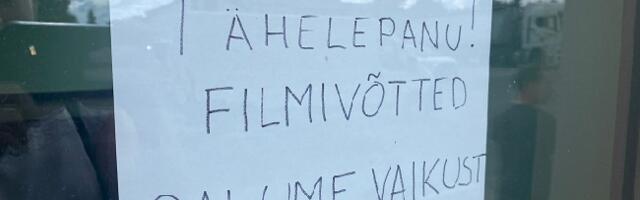 TÄHELEPANU!
FILMIVÕTTED
PALUME VAIKUST